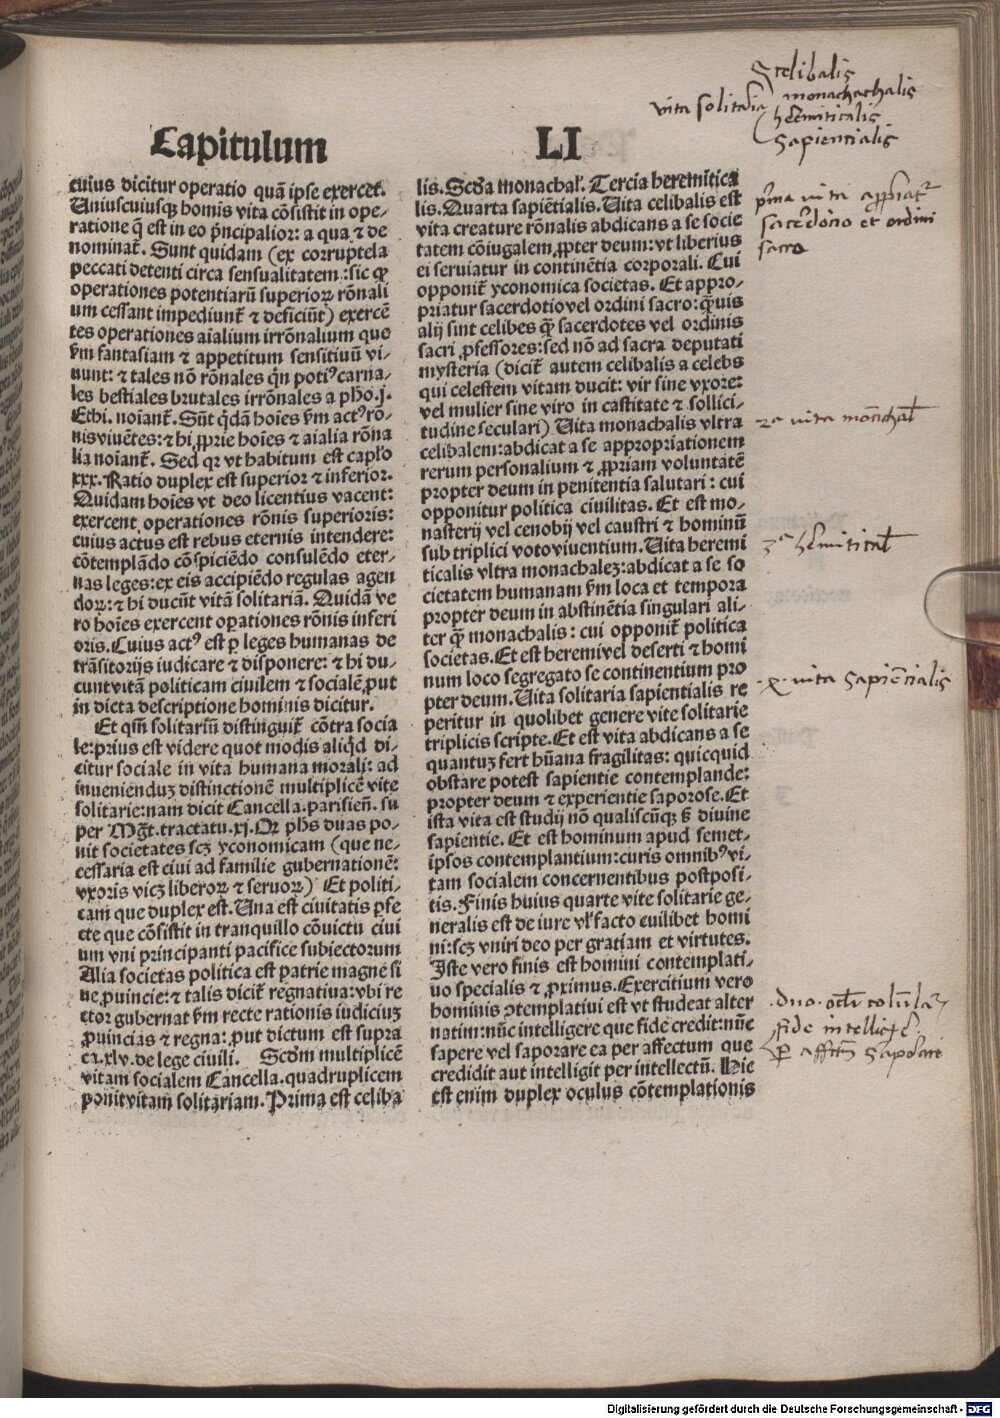 Capitulum LI
cuius dicitur operatio quā ipse exercet.
Uniuscuiusqꝫ homīs vita cōsistit in ope/
ratione q̄ est in eo p̄ncipalior: a qua ⁊ de
nominat̄. Sunt quidam (ex corruptela
peccati detenti circa sensualitatem: sic ꝙ
operationes potentiarū superioꝝ rōnali
um cessant impediunt̄ ⁊ deficiūt) exercē
tes operationes aīalium irrōnalium que
ẜm fantasiam ⁊ appetitum sensitiuū vi/
uunt: ⁊ tales nō rōnales q̄n potiꝰ carna/
les bestiales brutales irrōnales a pho.j.
Ethi. noīant̄. Sūt q̄dā hoīes ẜm actꝰ rō/
nis viuētes: ⁊ hi ꝓprie hoīes ⁊ aīalia rōna
lia noīant̄. Sed qꝛ vt habitum est capło
xxx. Ratio duplex est superior ⁊ inferior.
Quidam hoīes vt deo licentius vacent:
exercent operationes rōnis superioris:
cuius actus est rebus eternis intendere:
cōtemplādo cōspiciēdo consulēdo eter/
nas leges: ex eis accipiēdo regulas agen
doꝝ: ⁊ hi ducūt vitā solitariā. Quidā ve
ro hoīes exercent oꝑationes rōnis inferi
oris. Cuius actꝰ est ꝑ leges humanas de
trāsitorijs iudicare ⁊ disponere: ⁊ hi du/
cunt vitā politicam ciuilem ⁊ socialē, ꝓut
in dicta descriptione hominis dicitur.
Et qm̄ solitariū distinguit̄ cōtra socia
le: prius est videre quot modis aliqd di/
citur sociale in vita humana morali: ad
inuenienduꝫ distinctionē multiplicē vite
solitarie: nam dicit Cancella. parisien̄. su
per Mḡt. tractatu .xj. Qꝛ phs duas po/
nit societates scꝫ yconomicam (que ne/
cessaria est ciui ad familie gubernationē:
vxoris vicꝫ liberoꝝ ⁊ seruoꝝ) Et politi/
cam que duplex est. Una est ciuitatis ꝑfe
cte que cōsistit in tranquillo cōuictu ciui
um vni principanti pacifice subiectorum
Alia societas politica est patrie magne si
ue ꝓuincie: ⁊ talis dicit̄ regnatiua: vbi re
ctor gubernat ẜm recte rationis iudiciuꝫ
ꝓuincias ⁊ regna: ꝓut dictum est supra
ca. xlv. de lege ciuili. Scdm multiplicē
vitam socialem Cancella. quadruplicem
ponit vitam solitariam. Prima est celiba
lis. Scda monachal̄. Tercia heremitica
lis. Quarta sapiētialis. Uita celibalis est
vita creature rōnalis abdicans a se socie
tatem cōiugalem ꝓpter deum: vt liberius
ei seruiatur in continētia corporali. Cui
opponit̄ yconomica societas. Et appro/
priatur sacerdotio vel ordini sacro: ꝙuis
alij sint celibes q̄ sacerdotes vel ordinis
sacri ꝓfessores: sed nō ad sacra deputati
mysteria (dicit̄ autem celibalis a celebs
qui celestem vitam ducit: vir sine vxore:
vel mulier sine viro in castitate ⁊ sollici/
tudine seculari) Uita monachalis vltra
celibalem: abdicat a se appropriationem
rerum personalium ⁊ ꝓpriam voluntatē
propter deum in penitentia salutari: cui
opponitur politica ciuilitas. Et est mo/
nasterij vel cenobij vel caustri ⁊ hominū
sub triplici voto viuentium. Uita heremi
ticalis vltra monachaleꝫ: abdicat a se so
cietatem humanam ẜm loca et tempora
propter deum in abstinētia singulari ali/
ter q̄ monachalis: cui opponit̄ politica
societas. Et est heremi vel deserti ⁊ homi
num loco segregato se continentium pro
pter deum. Uita solitaria sapientialis re
peritur in quolibet genere vite solitarie
triplicis scripte. Et est vita abdicans a se
quantuꝫ fert hūana fragilitas: quicquid
obstare potest sapientie contemplande:
propter deum ⁊ experientie saporose. Et
ista vita est studij nō qualiscūqꝫ ẜ diuine
sapientie. Et est hominum apud semet/
ipsos contemplantium: curis omnibꝰ vi/
tam socialem concernentibus postposi/
tis. Finis huius quarte vite solitarie ge/
neralis est de iure vl̄ facto cuilibet homi
ni: scꝫ vniri deo per gratiam et virtutes.
Iste vero finis est homini contemplati/
uo specialis ⁊ ꝓximus. Exercitium vero
hominis ꝯtemplatiui est vt studeat alter
natim: nūc intelligere que fide credit: nūc
sapere vel saporare ea per affectum que
credidit aut intelligit per intellectū. Hic
est enim duplex oculus cōtemplationis
vita solitaria
celibalis
monachachalis
heremiticalis
Sapiencialis
p̄ma vita appropriat̄
sacerdocio et ordini
sacro
2ᵃ vita monachal̄
3ᵃ heremitical̄
4ᵃ vita Sapiēcialis
duo ocl̄i
fide intelligere
per affectū Sapere
Digitalisierung gefördert durch die Deutsche Forschungsgemeinschaft - DFG